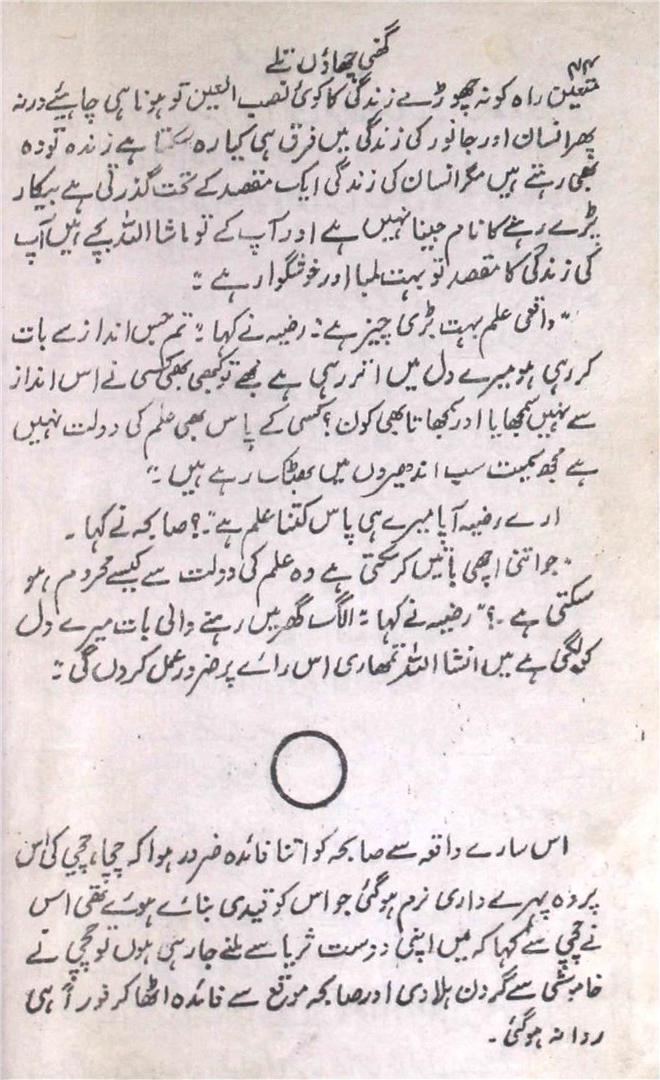 گھنی چھاؤں تلے
۴۴
متعین راہ کو نہ چھوڑے زندگی کا کوئی نصب العین تو ہونا ہی چاہیئے ورنہ
پھر انسان اور جانور کی زندگی میں فرق ہی کیا رہ سکتا ہے زندہ تو وہ
بھی رہتے ہیں مگر انسان کی زندگی ایک مقصد کے تحت گذرتی ہے بیکار
پڑے رہنے کا نام جینا نہیں ہے اور آپ کے تو ماشا اللہ بچے ہیں آپ
کی زندگی کا مقصد تو بہت لمبا اور خوشگوار ہے :"
"واقعی علم بہت بڑی چیز ہے" رضیہ نے کہا "تم جس انداز سے بات
کر رہی ہو میرے دل میں اتر رہی ہے مجھے تو کبھی بھی کسی نے اس انداز
سے نہیں سمجھایا اور سمجھاتا بھی کون؟ کسی کے پاس بھی علم کی دولت نہیں
ہے مجھ سمیت سب اندھیروں میں بھٹک رہے ہیں۔"
ارے رضیہ آپا میرے ہی پاس کتنا علم ہے"۔؟ صابحہ نے کہا۔
"جو اتنی اچھی باتیں کر سکتی ہے وہ علم کی دولت سے کیسے محروم ہو
سکتی ہے۔؟" رضیہ نے کہا "الگ گھر میں رہنے والی بات میرے دل
کو لگی ہے میں انشا اللہ تمھاری اس رائے پر ضرور عمل کروں گی :"
اس سارے واقعہ سے صابحہ کو اتنا فائدہ ضرور ہوا کہ چچا، چچی کی اس
پر وہ پہرے داری نرم ہو گئی جو اس کو قیدی بنائے ہوئے تھی اس
نے چچی سے کہا کہ میں اپنی دوست ثریا سے ملنے جا رہی ہوں تو چچی نے
خاموشی سے گردن ہلا دی اور صابحہ موقع سے فائدہ اٹھا کر فوراً ہی
روانہ ہو گئی۔